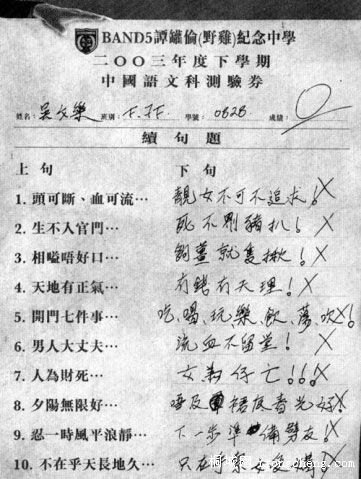 BAND5譚罐倫(野雞)紀念中學
二〇〇三年度下學期
中國語文科測驗券
姓名: 吳文樂 班別: F.7F. 學號: 0828 成績: 0
續句題
上句 下句
1. 頭可斷、血可流… 靚女不可不追求!X
2. 生不入官門… 死不劏豬扒!X
3. 相嗌唔好口… 夠薑就隻揪!X
4. 天地有正氣… 有錢有天理!X
5. 開門七件事… 吃、喝、玩、樂、飲、蕩、吹!X
6. 男人大丈夫… 流血不留堂! X
7. 人為財死… 女為仔亡!!!X
8. 夕陽無限好… 裙底春光好!X
9. 忍一時風平浪靜… 下一步準備劈友!X
10. 不在乎天長地久… 只在乎